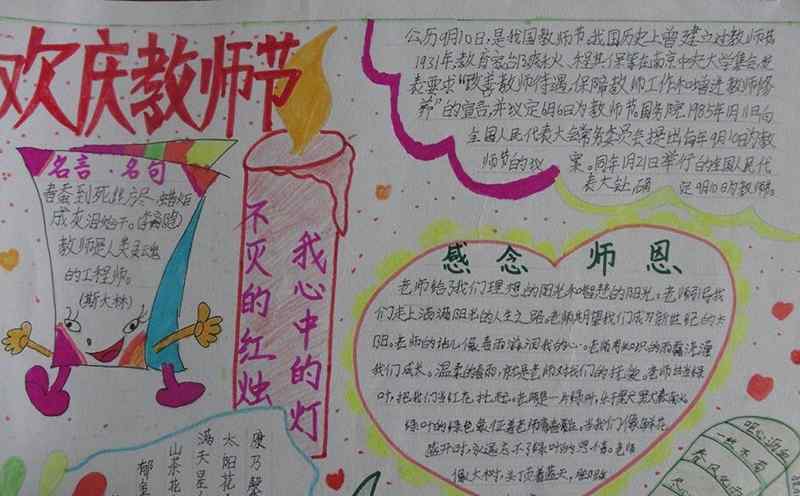 欢庆教师节
名言·名句
春蚕到死丝方尽 蜡炬
成灰泪始干。(李商隐)
教师是人类灵魂
的工程师。
(斯大林)
不灭的红烛
我心中的灯
公历9月10日,是我国教师节。我国历史上曾建立过教师节
1931年,教育家邰爽秋、程其保等在南京中央大学集会,发
表要求“改善教师待遇,保障教师工作和增进教师修
养”的宣言,并议定6月6日为教师节。国务院1985年1月11日向
全国人民代表大会常务委员会提出每年9月10日为教
师节的议案。同年1月21日举行的全国人民代
表大会 确定9月10日为教师节。
感念师恩
老师给了我们理想的阳光和智慧的阳光,老师引导我
们走上洒满阳光的人生之路。老师期望我们成为新世纪的太
阳。老师的话儿像春雨滋润我的心。老师用知识的雨露浇灌
我们成长。温柔的春雨,就是老师对我们的抚爱。老师站在绿
叶,把我们当红花 扶植。老师是一片绿叶,
绿叶的绿色象征着老师青春,当我们像鲜花
盛开时,永远忘不了绿叶的恩情。老师
像大树,头顶着蓝天,
康乃馨
太阳花
满天星
山茶花
郁金
春风化雨